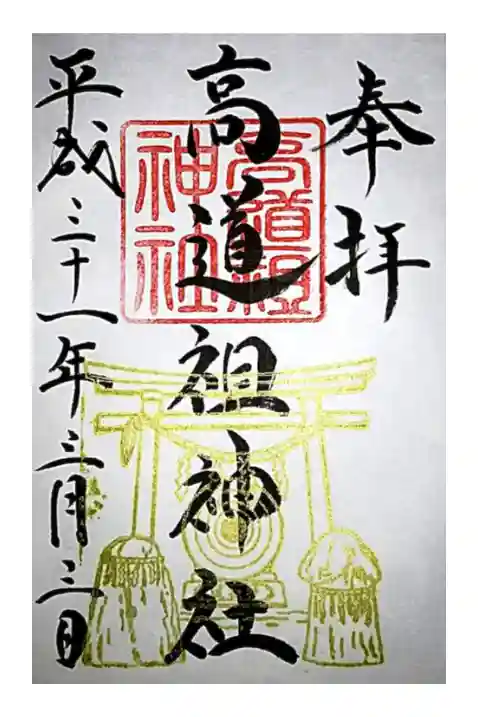 奉拝
高道祖神社
高道祖
神社
平成三十一年三月三日